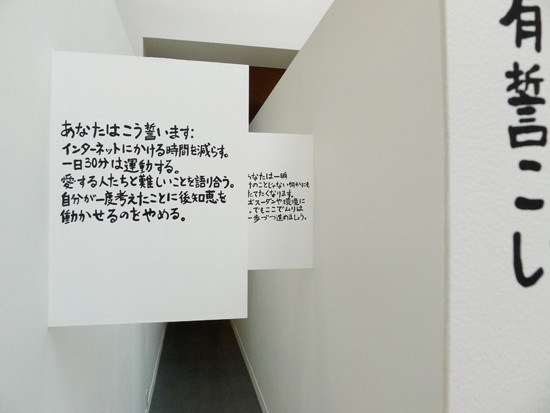 あなたはこう誓います:
インターネットにかける時間を減らす。
一日30分は運動する。
愛する人たちと難しいことを語り合う。
自分が一度考えたことに後知恵を
働かせるのをやめる。
あなたは一瞬
けのことじゃない何かにも
たてたくなります。
ポスーダンや環境に
でもここでムリは
一歩づつ進めましょう。
有誓こし